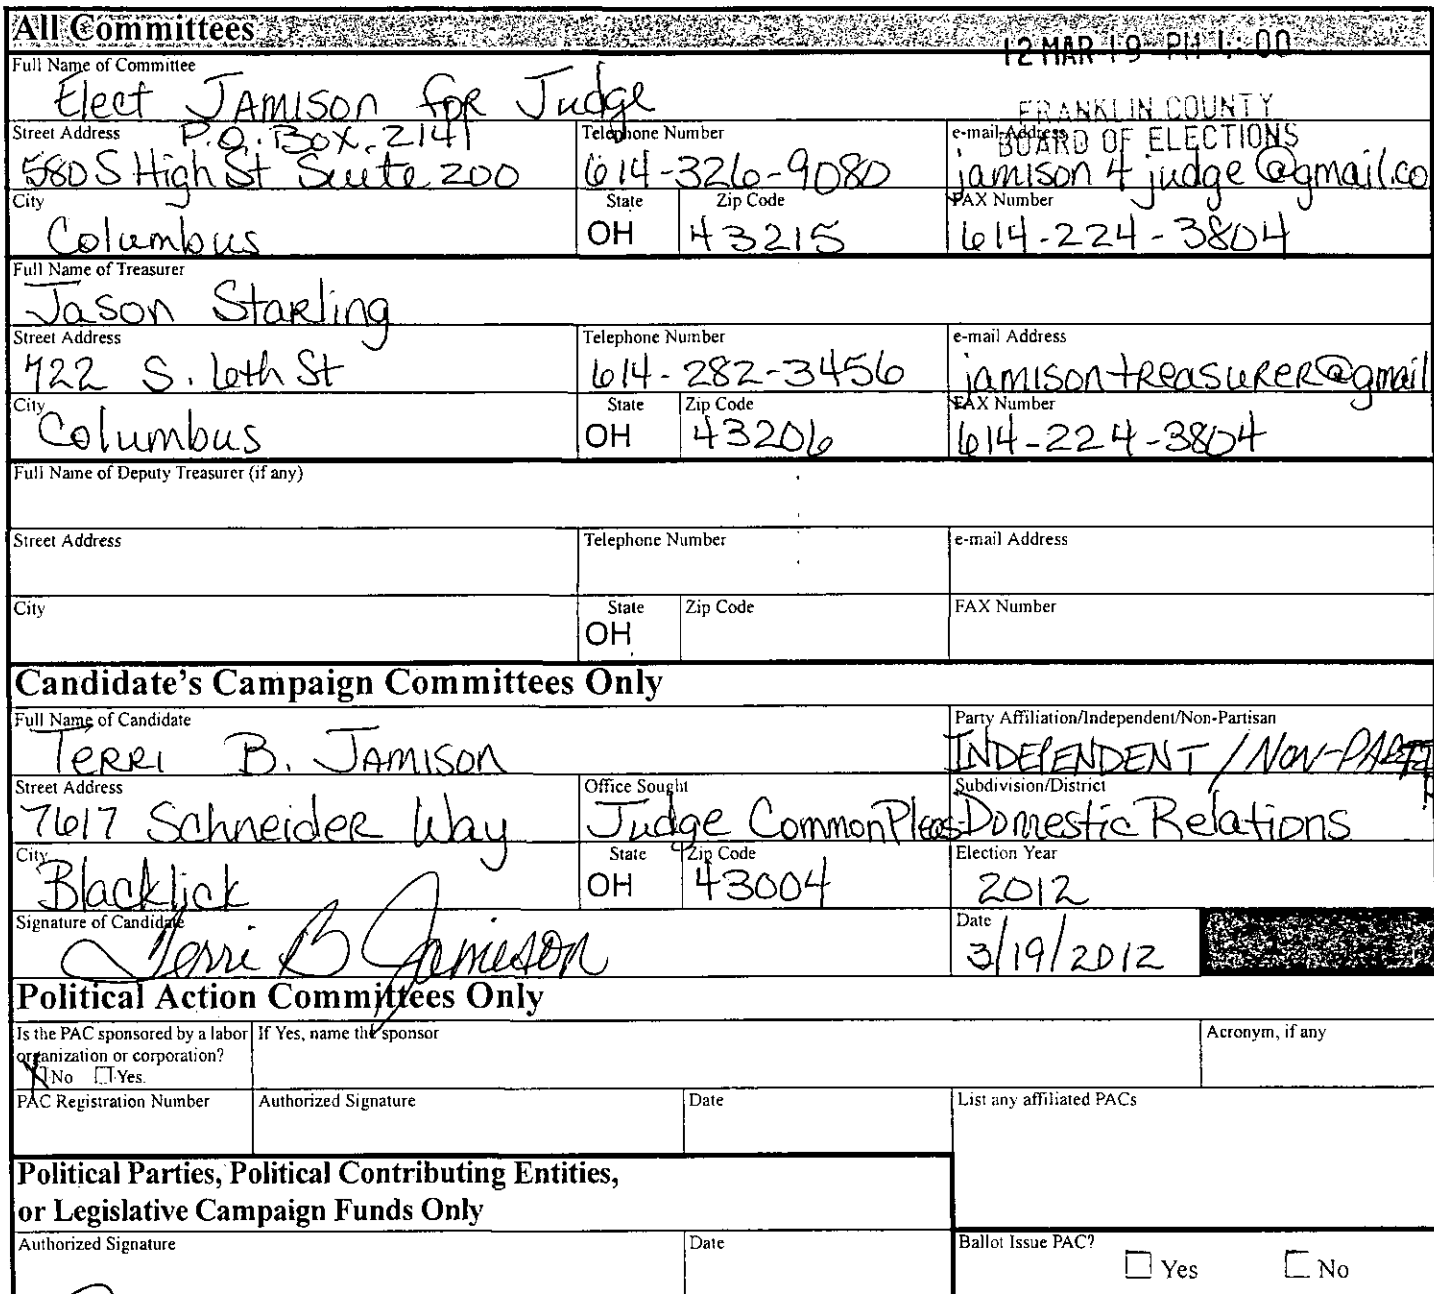 All Committees
12 MAR 19 PM 4:00
Full Name of Committee
Elect Jamison for Judge
FRANKLIN COUNTY
BOARD OF ELECTIONS
Street Address
P.O. Box. 2141
580 S High St Suite 200
Telephone Number
614-326-9080
e-mail Address
jamison4judge@gmail.co
City
Columbus
State
OH
Zip Code
43215
FAX Number
614-224-3804
Full Name of Treasurer
Jason Starling
Street Address
722 S. 6th St
Telephone Number
614-282-3456
e-mail Address
jamisontreasurer@gmail
City
Columbus
State
OH
Zip Code
43206
FAX Number
614-224-3804
Full Name of Deputy Treasurer (if any)
Street Address
Telephone Number
e-mail Address
City
State
OH
Zip Code
FAX Number
Candidate's Campaign Committees Only
Full Name of Candidate
Terri B. Jamison
Party Affiliation/Independent/Non-Partisan
INDEPENDENT / NON-
Street Address
7617 Schneider Way
Office Sought
Judge Common Pleas-
Subdivision/District
Domestic Relations
City
Blacklick
State
OH
Zip Code
43004
Election Year
2012
Signature of Candidate
Terri B Jamison
Date
3/19/2012
Political Action Committees Only
Is the PAC sponsored by a labor
organization or corporation?
No Yes.
If Yes, name the sponsor
Acronym, if any
PAC Registration Number
Authorized Signature
Date
List any affiliated PACs
Political Parties, Political Contributing Entities,
or Legislative Campaign Funds Only
Authorized Signature
Date
Ballot Issue PAC?
Yes No